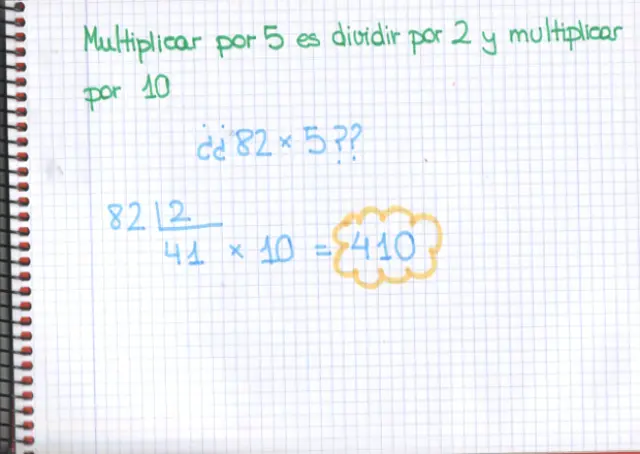 Multiplicar por 5 es dividir por 2 y multiplicar
por 10
¿¿82 × 5??
82 |2
41 × 10 = 410